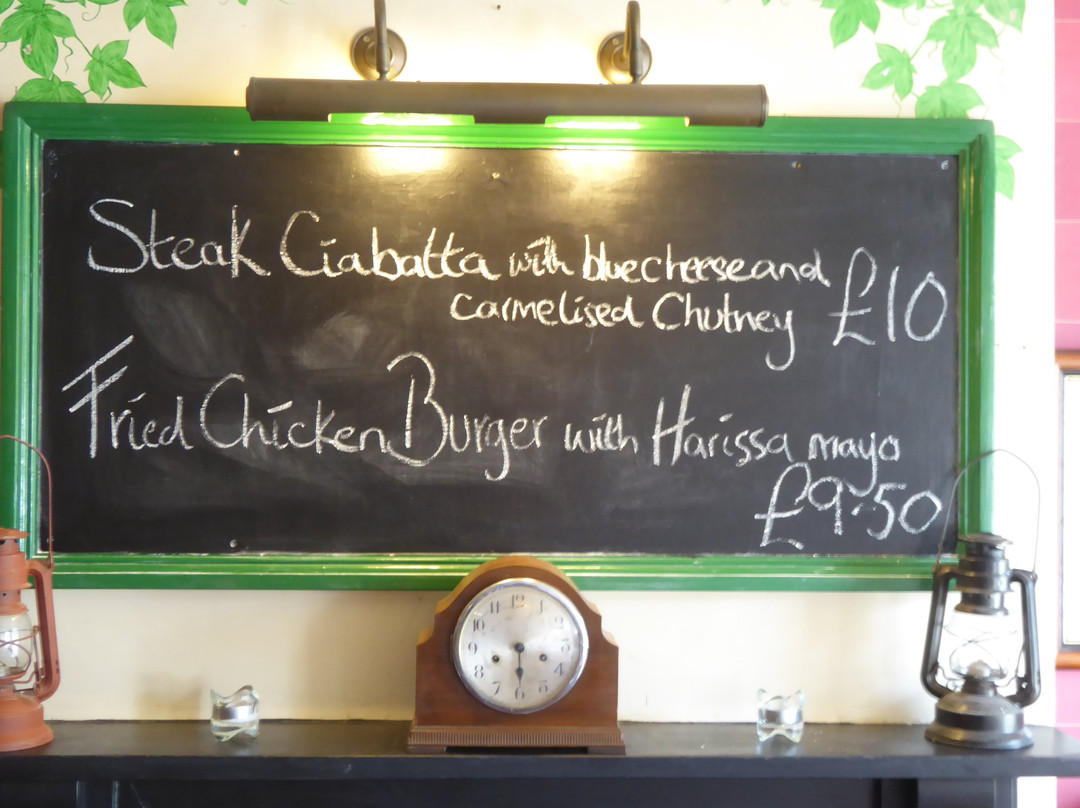 Steak Ciabatta with blue cheese and
carmelised Chutney £10
Fried Chicken Burger with Harissa mayo
£9.50
12
1
2
3
4
5
6
7
8
9
10
11